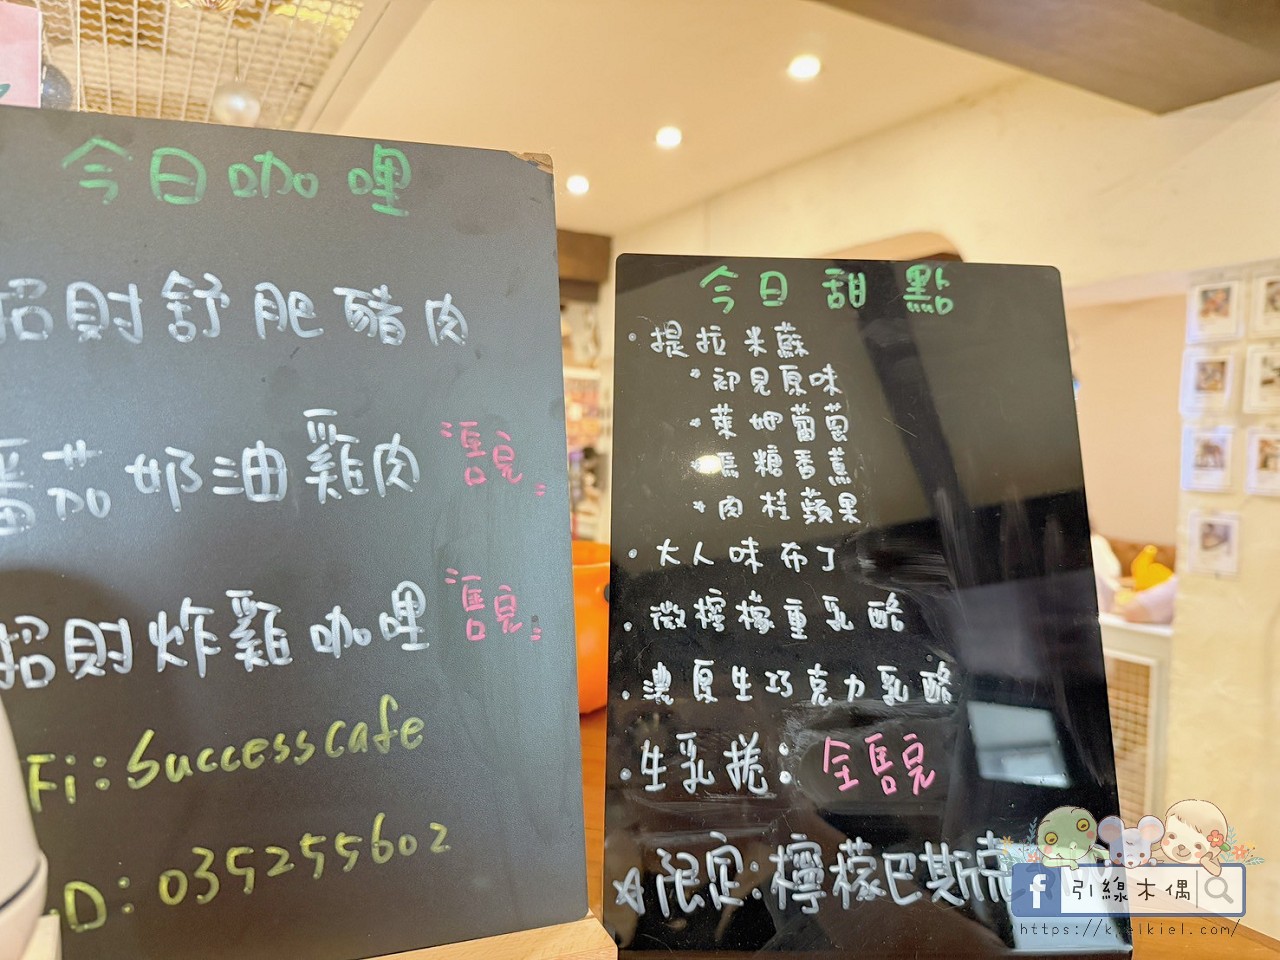 今日咖哩
招財舒肥豬肉
番茄奶油雞肉 售完
招財炸雞咖哩 售完
Fi:Successcafe
D:035255602
今日甜點
·提拉米蘇
*初見原味
*萊姆葡萄
焦糖香蕉
*肉桂蘋果
·大人味布丁
·微檸檬重乳酪
·濃厚生巧克力乳酪
·生乳捲:全售完
*限定:檸檬巴斯克
引線木偶
https://kielkiel.com/